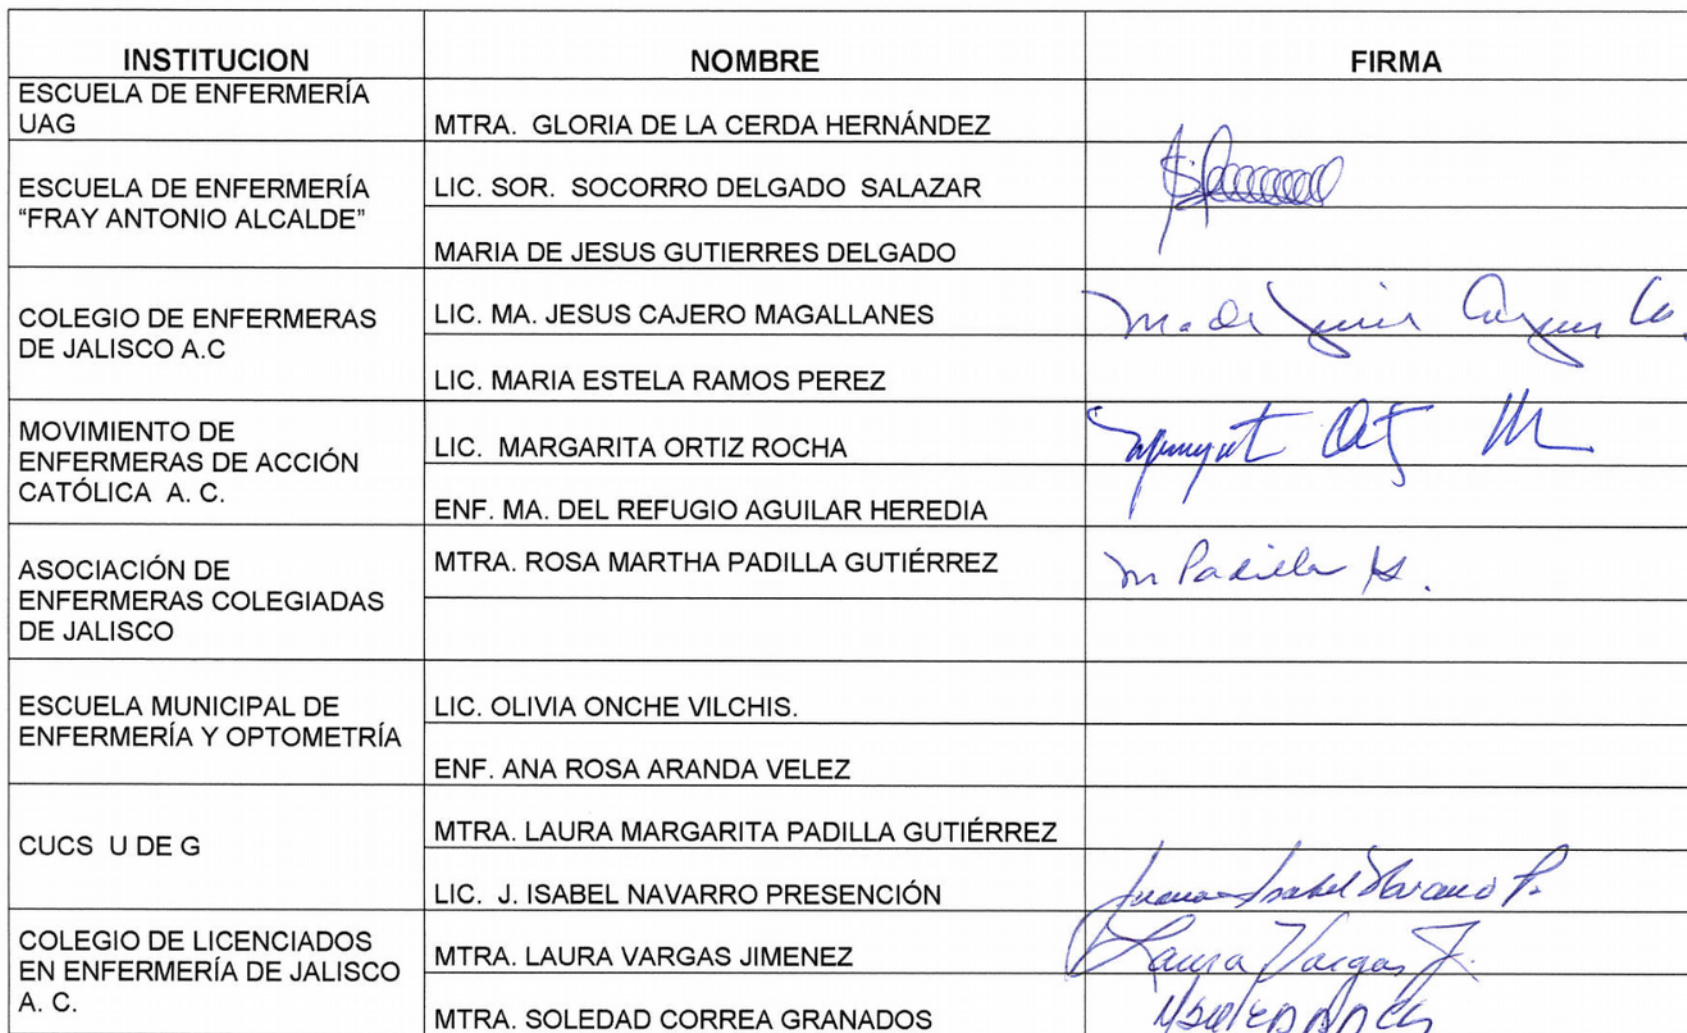 INSTITUCION NOMBRE FIRMA
ESCUELA DE ENFERMERÍA
UAG
MTRA. GLORIA DE LA CERDA HERNÁNDEZ
ESCUELA DE ENFERMERÍA
“FRAY ANTONIO ALCALDE”
LIC. SOR. SOCORRO DELGADO SALAZAR
MARIA DE JESUS GUTIERRES DELGADO
COLEGIO DE ENFERMERAS
DE JALISCO A.C
LIC. MA. JESUS CAJERO MAGALLANES
LIC. MARIA ESTELA RAMOS PEREZ
MOVIMIENTO DE
ENFERMERAS DE ACCIÓN
CATÓLICA A. C.
LIC. MARGARITA ORTIZ ROCHA
ENF. MA. DEL REFUGIO AGUILAR HEREDIA
ASOCIACIÓN DE
ENFERMERAS COLEGIADAS
DE JALISCO
MTRA. ROSA MARTHA PADILLA GUTIÉRREZ
M Padilla G.
ESCUELA MUNICIPAL DE
ENFERMERÍA Y OPTOMETRÍA
LIC. OLIVIA ONCHE VILCHIS.
ENF. ANA ROSA ARANDA VELEZ
CUCS U DE G
MTRA. LAURA MARGARITA PADILLA GUTIÉRREZ
LIC. J. ISABEL NAVARRO PRESENCIÓN
Juana Isabel Navarro P.
COLEGIO DE LICENCIADOS
EN ENFERMERÍA DE JALISCO
A. C.
MTRA. LAURA VARGAS JIMENEZ
Laura Vargas J.
MTRA. SOLEDAD CORREA GRANADOS